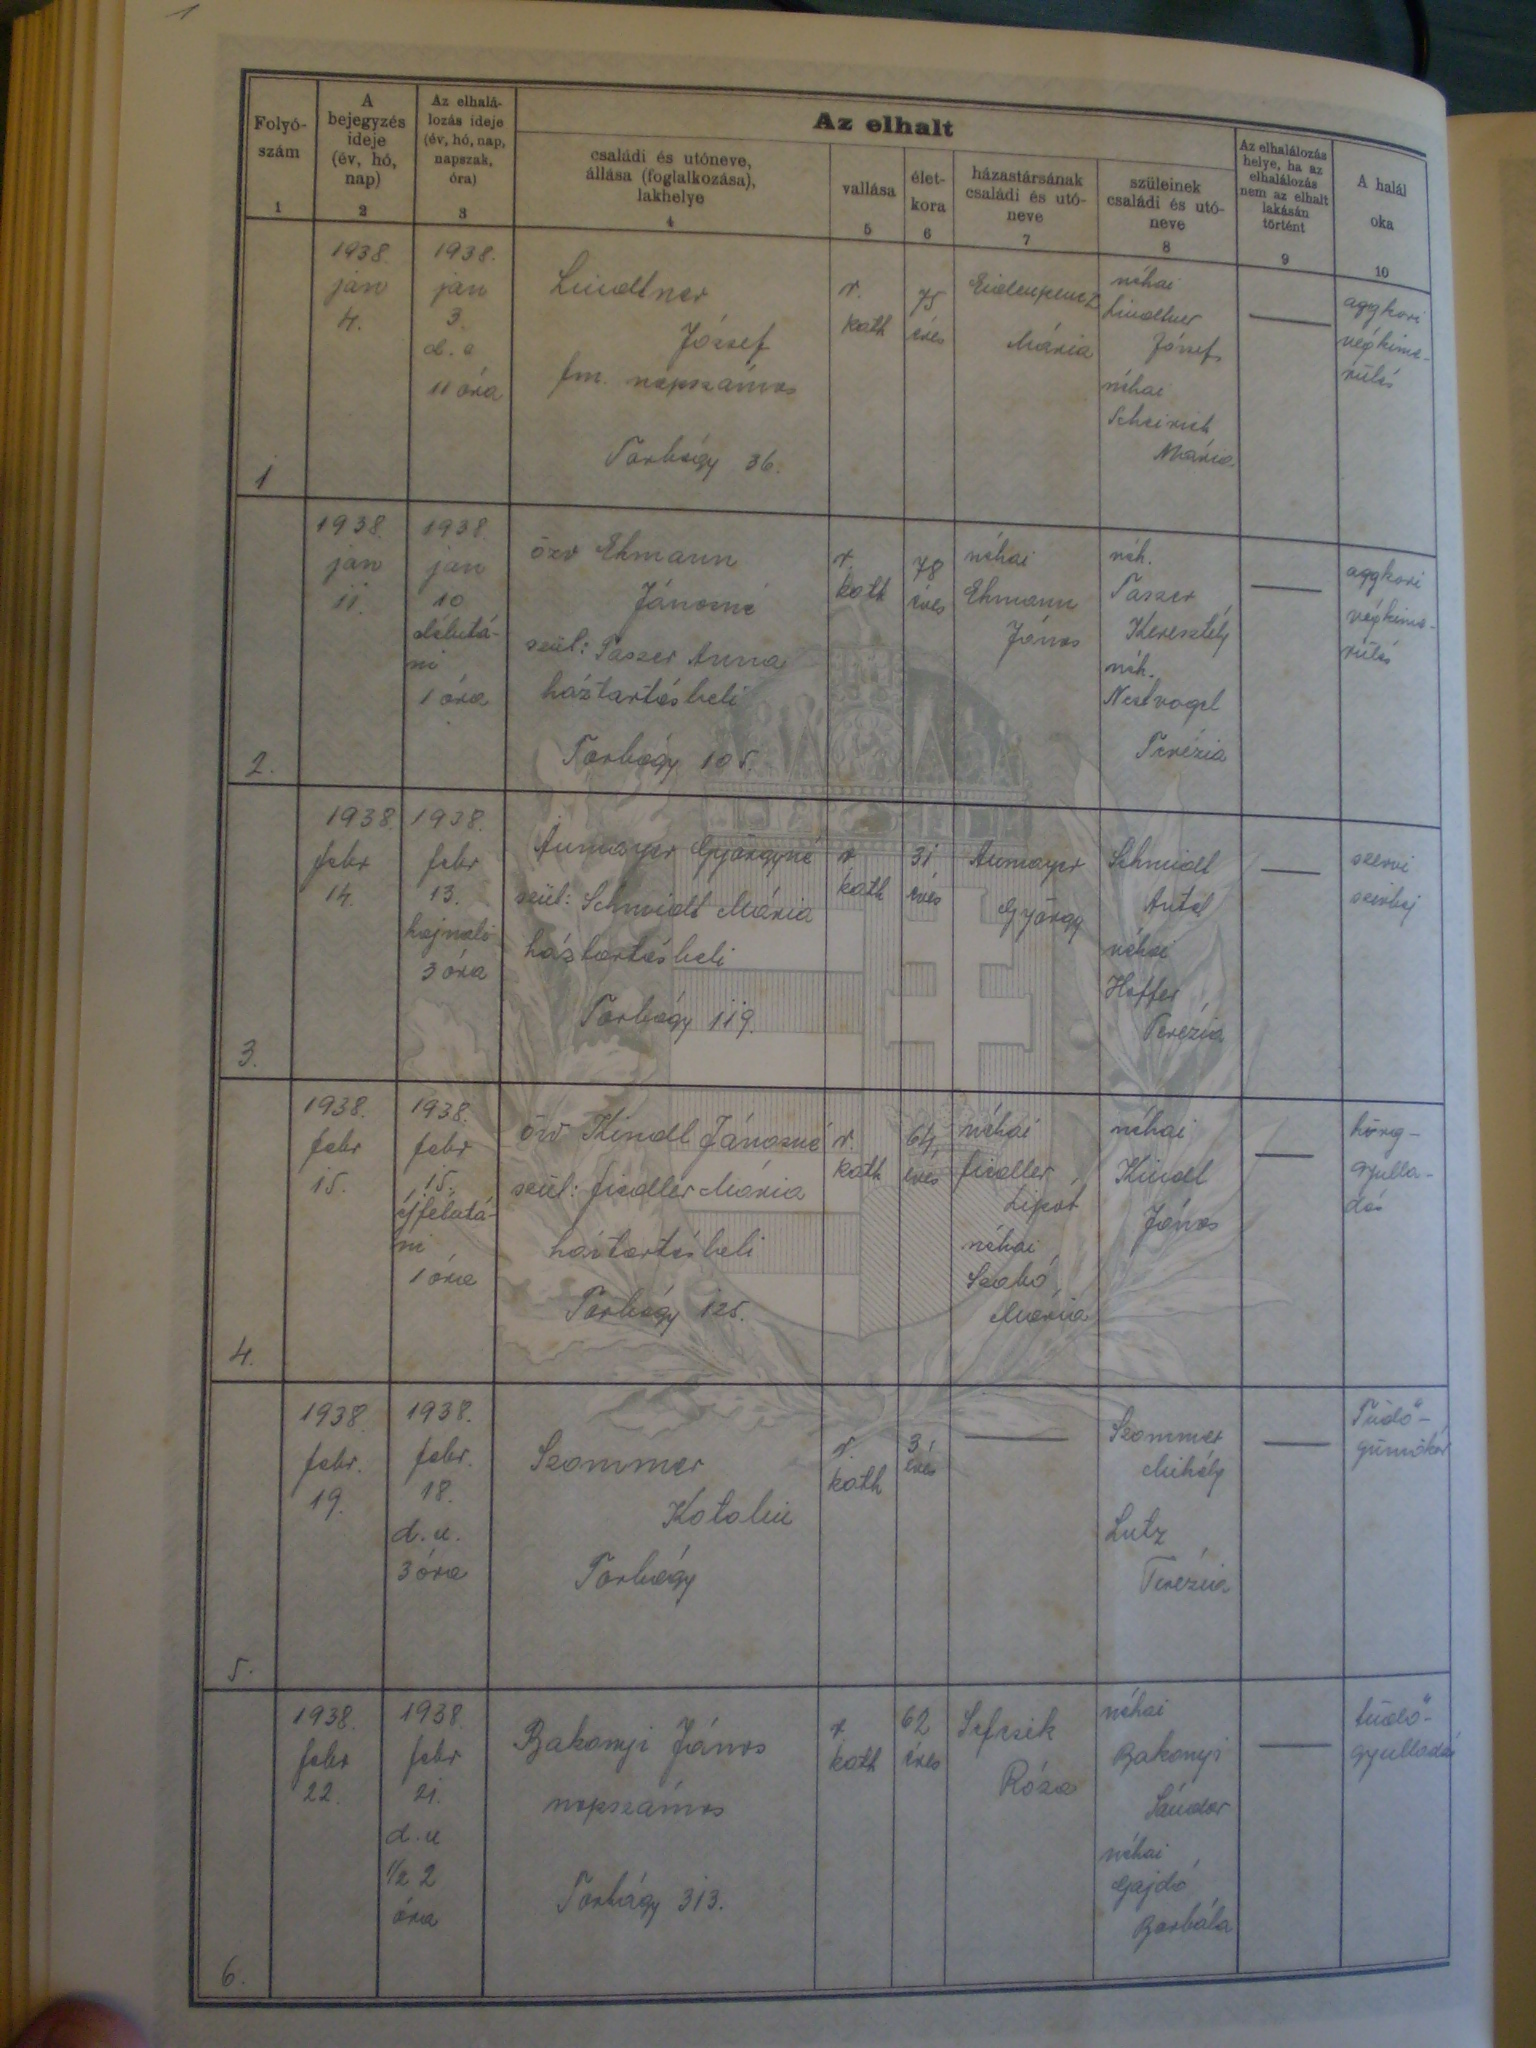 1
Folyó-
szám
1
A
bejegyzés
ideje
(év, hó,
nap)
2
Az elhalá-
lozás ideje
(év, hó, nap,
napszak,
óra)
3
Az elhalt
családi és utóneve,
állása (foglalkozása),
lakhelye
4
vallása
5
élet-
kora
6
házastársának
családi és utó-
neve
7
szüleinek
családi és utó-
neve
8
Az elhalálozás
helye, ha az
elhalálozás
nem az elhalt
lakásán
történt
9
A halál
oka
10
1
1938.
jan
4.
1938.
jan
3.
d. e
11 óra
Lindtner
József
fm. napszámos
Torbágy 36.
r.
kath
75
éves
Mária
néhai
Lindtner
József
néhai
Mária
aggkori
végkime-
rülés
2.
1938.
jan
11.
1938.
jan
10
délutá-
ni
1 óra
özv Ehmann
Jánosné
szül: Paszer Anna
háztartásbeli
Torbágy 105.
r.
kath
78
éves
néhai
Ehmann
János
néh.
Paszer
Keresztély
néh.
Nestvogel
Terézia
aggkori
végkime-
rülés
3.
1938
febr
14.
1938.
febr
13.
hajnali
3 óra
Aumayer Györgyné
szül: Schmidt Mária
háztartásbeli
Torbágy 119.
r
kath
31
éves
Aumayer
György
Schmidt
Antal
néhai
Hoffer
Terézia
szervi
szívbaj
4.
1938.
febr
15.
1938.
febr
15.
éjfélutá-
ni
1 óra
özv Kindl Jánosné
szül: fiedler Mária
háztartásbeli
Torbágy 125.
r.
kath
64
éves
néhai
fiedler
Lipót
néhai
Szabó
Mária
néhai
Kindl
János
hörg-
gyulla-
dás
5.
1938
febr.
19.
1938.
febr.
18.
d. u.
3 óra
Szommer
Katalin
Torbágy
r.
kath
3
éves
Szommer
Mihály
Lutz
Terézia
Tüdő-
gümőkór
6.
1938.
febr
22.
1938.
febr
21.
d. u
1/2 2
óra
Bakonyi János
napszámos
Torbágy 313.
r.
kath
62
éves
Sefcsik
Róza
néhai
Bakonyi
Sándor
néhai
Gajdó
Borbála
tüdő-
gyulladás